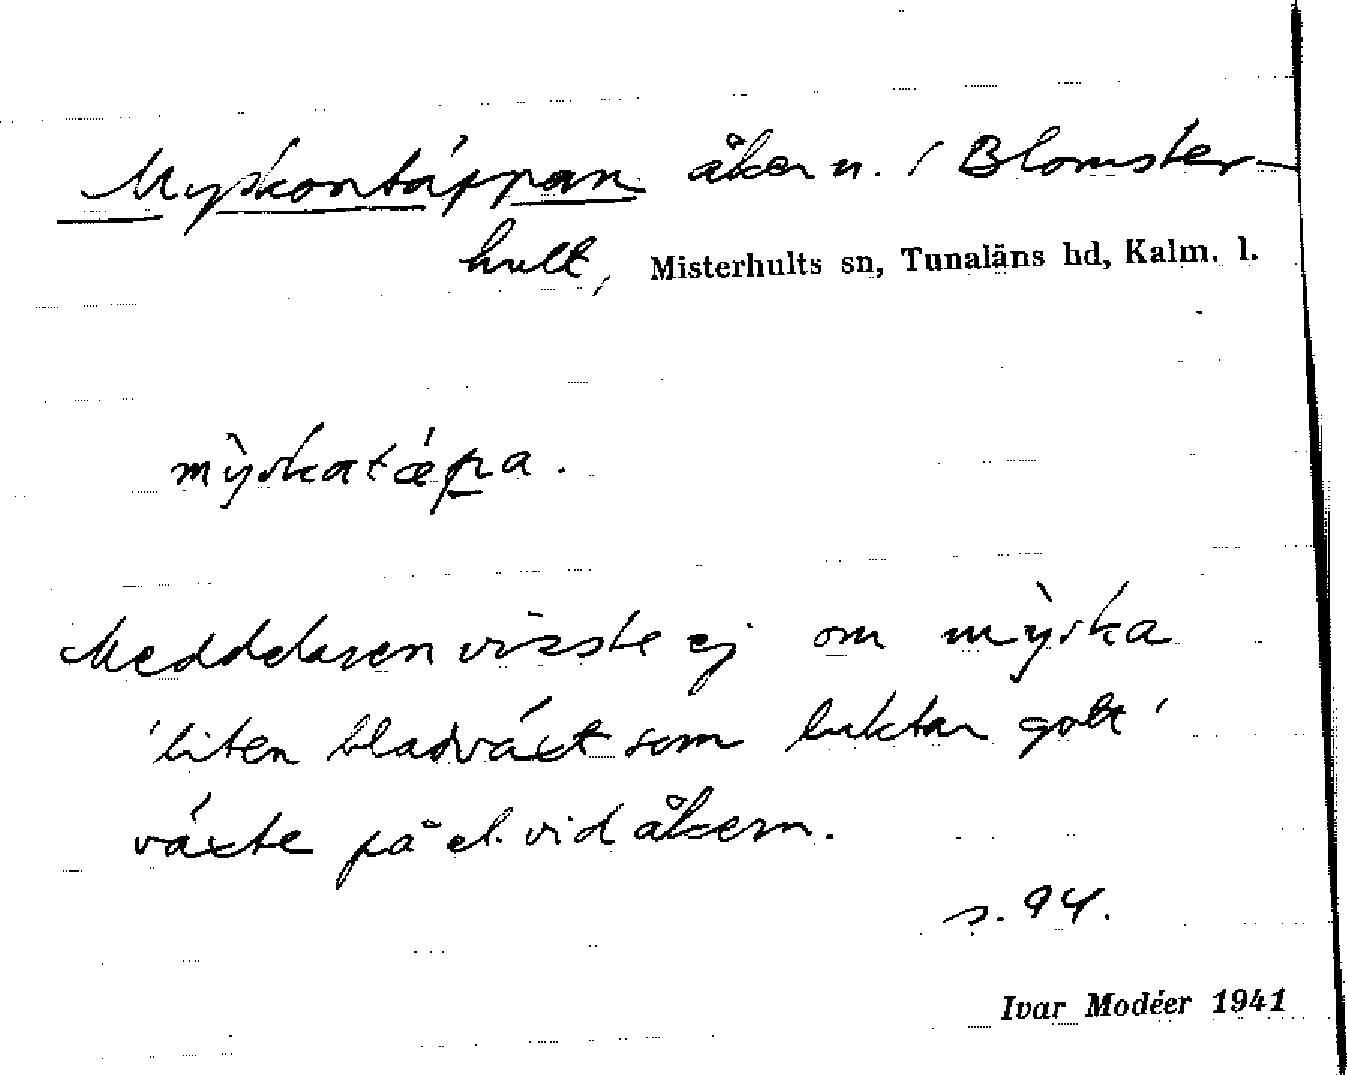 Myskontäppan åker n. i Blomster-
hult, Misterhults sn, Tunaläns hd, Kalm. l.
mỳskatǽpa.
Meddelaren visste ej om mỳska
'liten bladväxt som luktar gott'
växte på el. vid åkern.
s. 94.
Ivar Modéer 1941